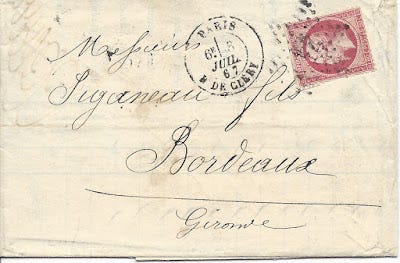 PARIS
6E
JUIL
67
R. DE CLERY
Messieurs
Siganeau fils
Bordeaux
Gironde